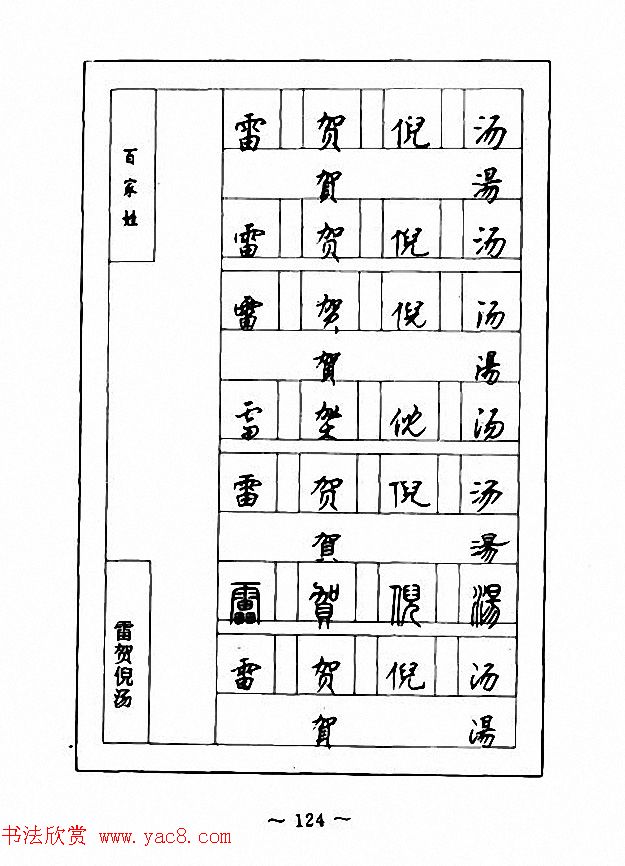 百家姓
雷 贺 倪 汤
賀 湯
雷 贺 倪 汤
雷 贺 倪 汤
賀 湯
雷 贺 倪 汤
雷 贺 倪 汤
賀 湯
雷 賀 倪 湯
雷 贺 倪 汤
賀 湯
雷贺倪汤
~ 124 ~
书法欣赏 www.yac8.com